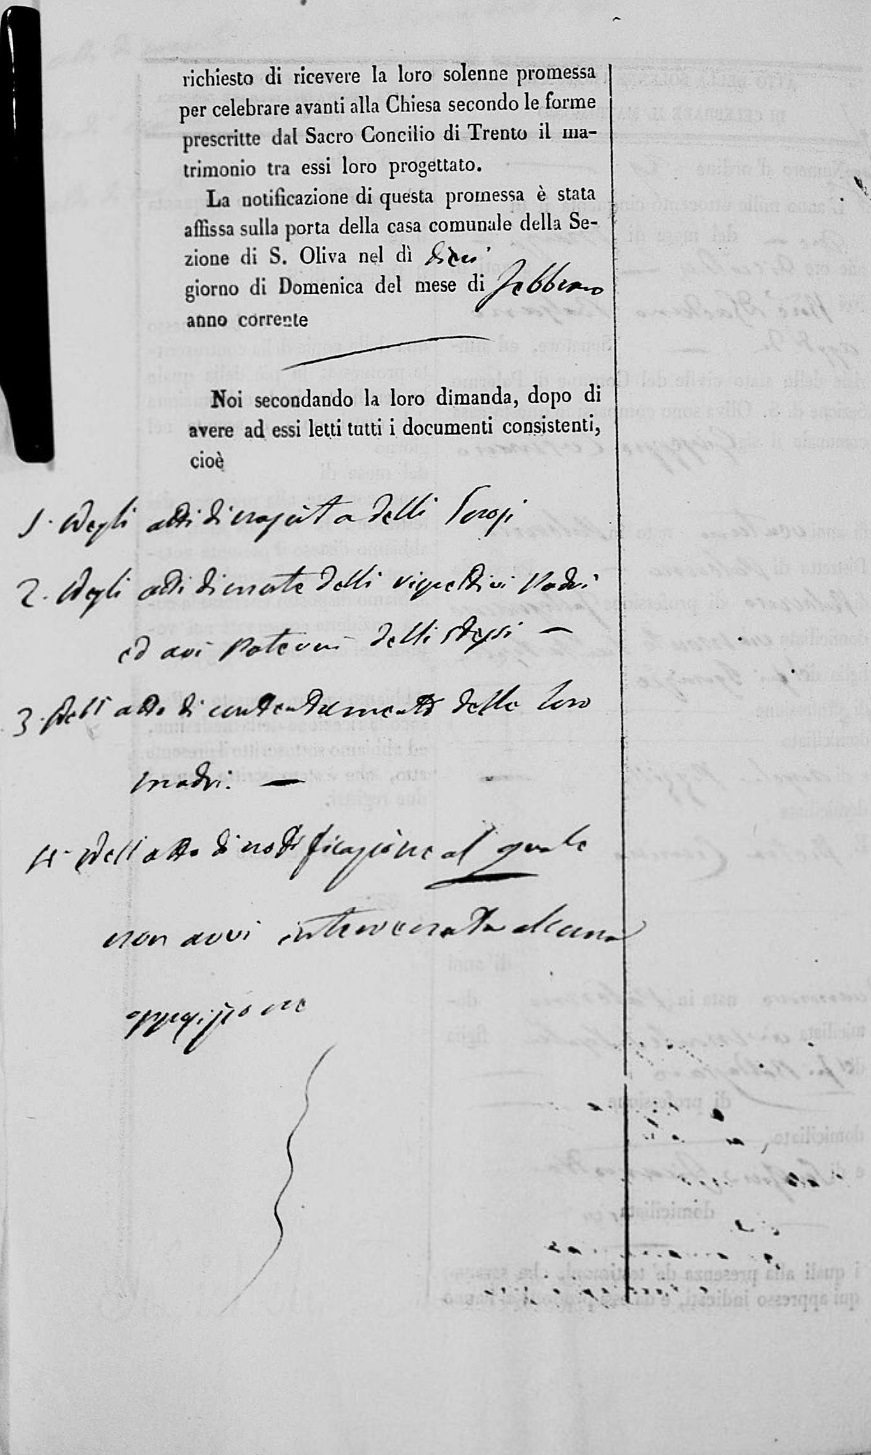 richiesto di ricevere la loro solenne promessa
per celebrare avanti alla Chiesa secondo le forme
prescritte dal Sacro Concilio di Trento il ma-
trimonio tra essi loro progettato.
La notificazione di questa promessa è stata
affissa sulla porta della casa comunale della Se-
zione di S. Oliva nel dì dieci
giorno di Domenica del mese di Febbraro
anno corrente
Noi secondando la loro dimanda, dopo di
avere ad essi letti tutti i documenti consistenti,
cioè
1. Negli atti di nascita delli Sposi
2. Negli atti di morte delli rispettivi Padri
ed avi Paterni delli stessi —
3. Nell atto di contentamento delle loro
madri. —
4. Nell atto di notificazione al quale
non avvi intervenuta alcuna
opposizione